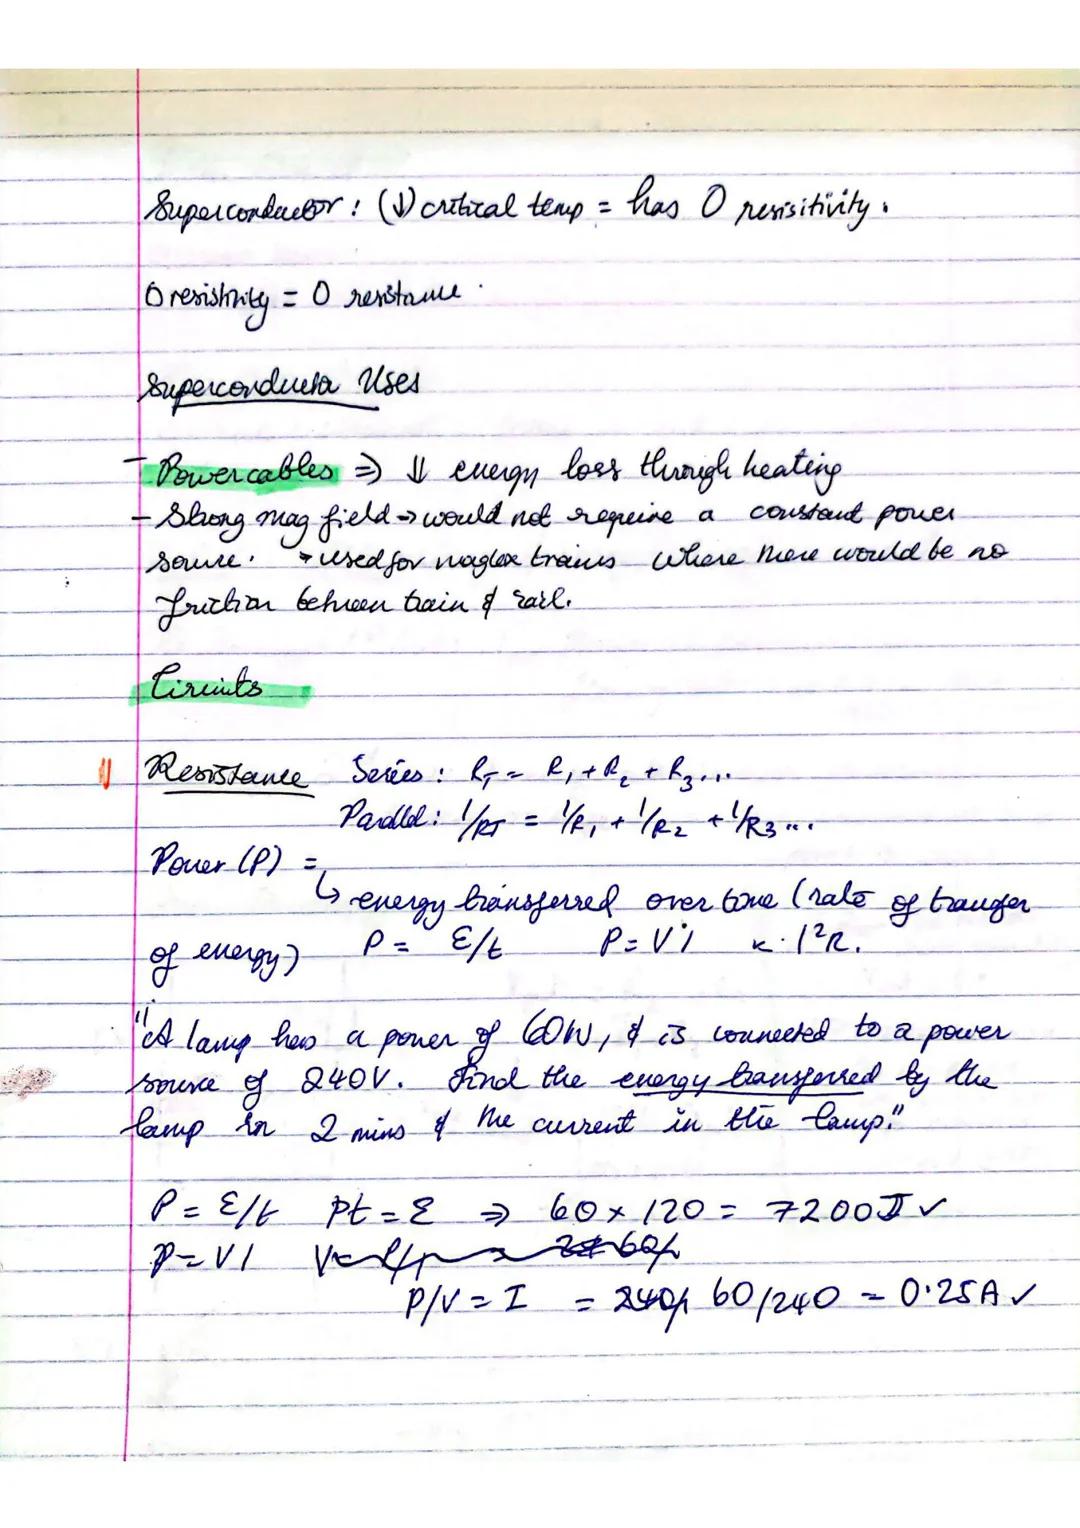 Superconductor : (↓) critical temp = has 0 resisitivity.
0 resistivity = 0 resistance.
Superconductor Uses
- Power cables ⇒ ⇓ energy loss through heating
- Strong mag field → would not require a constant power
source. → used for maglev trains where there would be no
friction between train & rail.
Circuits
Resistance Series : R_T = R₁ + R₂ + R₃...
Parallel : 1/RT = 1/R₁ + 1/R₂ + 1/R3...
Power (P) =
↳ energy transferred over time (rate of transfer
of energy) P = E/t P = VI I²R.
"A lamp has a power of 60W, & is connected to a power
source of 240V. Find the energy transferred by the
lamp in 2 mins & the current in the lamp."
P = E/t Pt = E ⇒ 60 x 120 = 7200J ✓
P = VI
P/V = I = 60/240 = 0.25A ✓